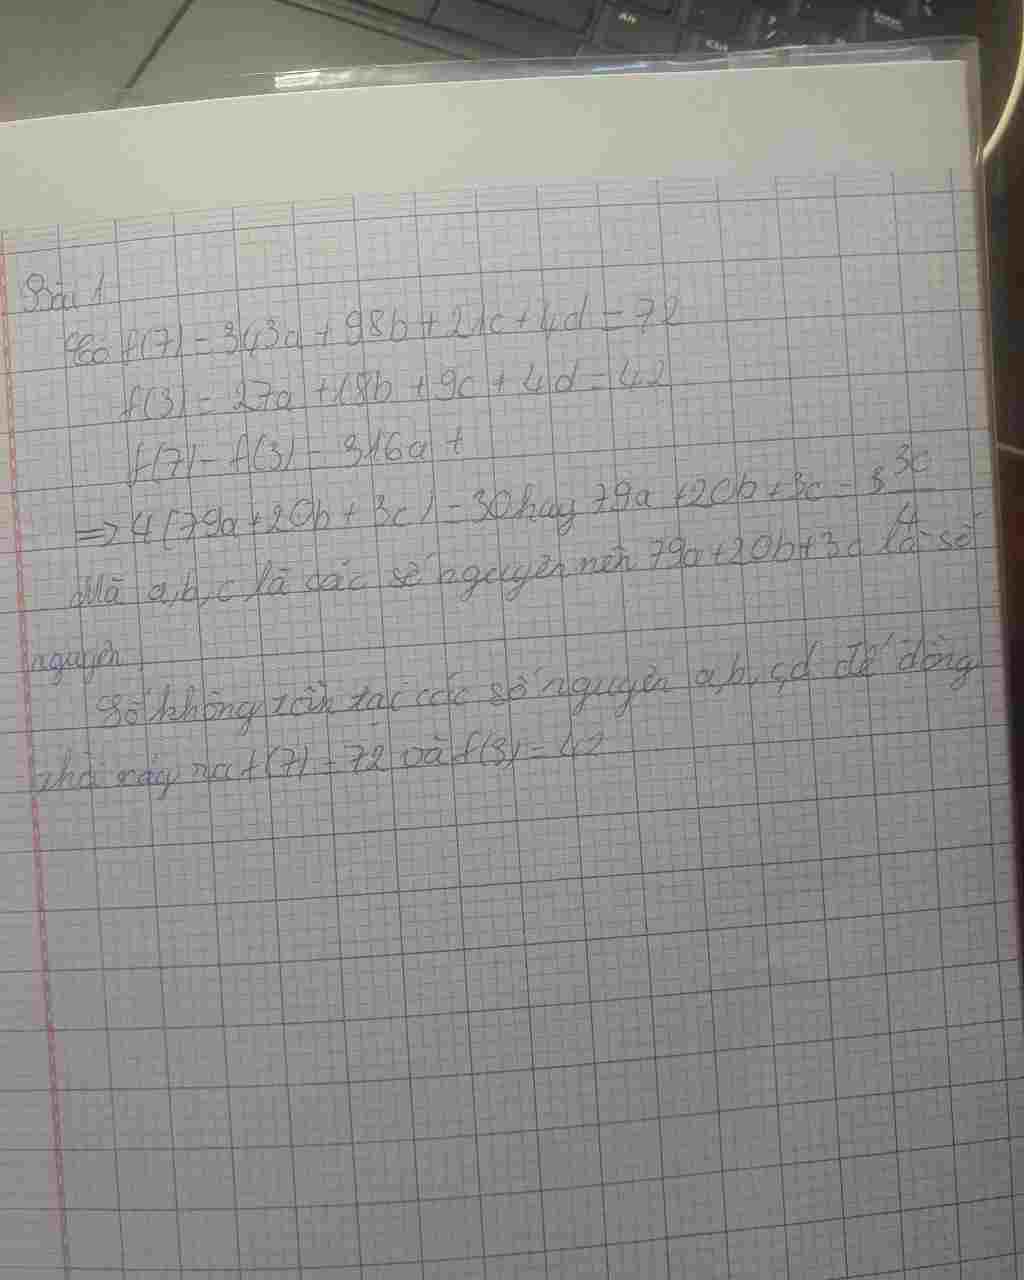 Bài 1
Có f(7) = 343a + 98b + 21c + 4d = 72
f(3) = 27a + 18b + 9c + 4d = 42
f(7) - f(3) = 316a +
=> 4(79a + 20b + 3c) = 30 hay 79a + 20b + 3c = 30/4
Mà a, b, c là các số nguyên nên 79a + 20b + 3c là số
nguyên
không tồn tại các số nguyên a, b, c, d để đồng
thời xảy ra f(7) = 72 và f(3) = 42